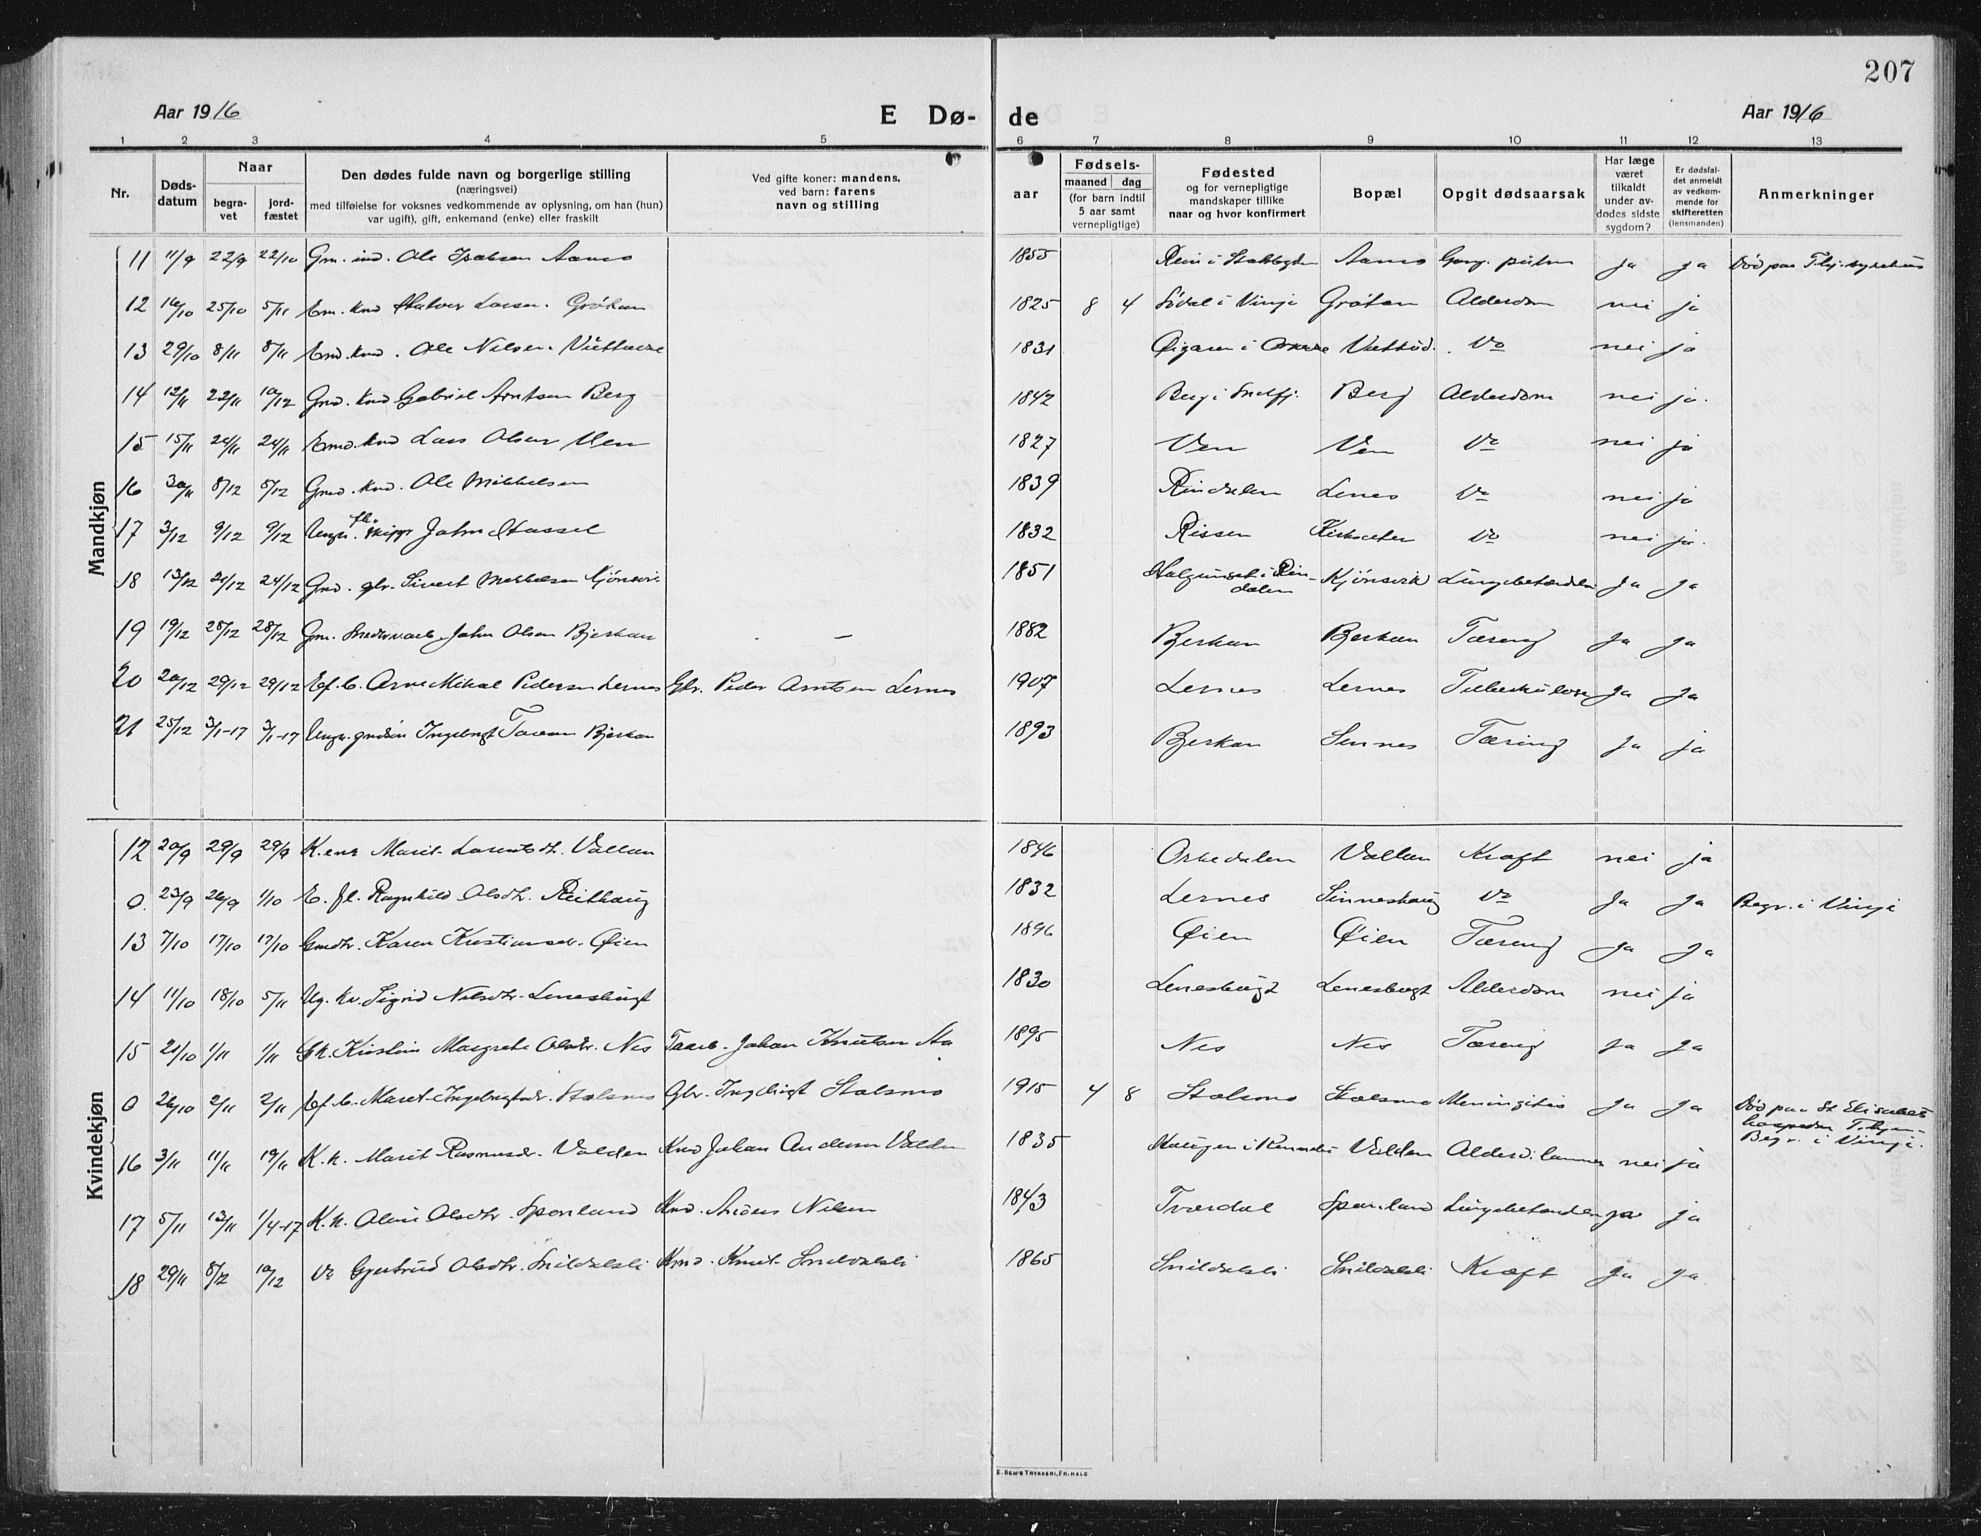 207
Aar 1916
E Dø-
de
Aar 1916
1 2 3 4 5 6 7 8 9 10 11 12 13
Nr.
Døds-
datum
Naar
begra-
vet
jord-
fæstet
Den dødes fulde navn og borgerlige stilling
(næringsvei)
med tilføielse for voksnes vedkommende av oplysning, om han (hun)
var ugift), gift, enkemand (enke) eller fraskilt
Ved gifte koner: mandens,
ved barn: farens
navn og stilling
aar
Fødsels-
maaned dag
(for barn indtil
5 aar samt
vernepligtige)
Fødested
og for vernepligtige
mandskaper tillike
naar og hvor konfirmert
Bopæl
Opgit dødsaarsak
Har læge
været
tilkaldt
under av-
dødes sidste
sygdom?
Er dødsfal-
det anmeldt
av vedkom-
mende for
skifteretten
(lensmanden)
Anmerkninger
Mandkjøn
11 11/9 22/9 22/10 Gm. ind. Ole Aamo 1855 Rein i Aamo ja ja Død paa
12 16/10 25/10 5/11 Em. Knd Larsen Gråtan 1825 8 4 i Vinje Gråtan Alderdom nei ja
13 29/10 8/11 8/11 Emd. knd. Ole Nilsen 1831 i Do nei ja
14 12/11 22/11 10/12 Gmd. Knd Gabriel Arntsen Berg 1842 Berg i Snilfj. Berg Alderdom nei ja
15 15/11 24/11 24/11 Emd. knd Lars Olsen Ven 1827 Ven Ven Do nei ja
16 30/11 8/12 8/12 Gmd. Knd. Ole Mikkelsen 1839 Rindalen Lenes Do nei ja
17 3/12 9/12 9/12 Ungk. fh. skippr John Hassel 1832 Rissen Kirksæter Do nei ja
18 13/12 21/12 24/12 Gmd. gbr. Sivert Mikkelsen Kjønsvik 1851 Halgunset i Rin-
dalen Kjønsvik Lungebetændelse Ja Ja
19 19/12 28/12 28/12 Gm. John Olsen Bjerkan — 1882 Bjerkan Bjerkan Tæring Ja Ja
20 20/12 29/12 29/12 Ef. b. Arne Mikal Pedersen Lernes Gbr. Peder Arntsen Lernes 1907 Lernes Lernes Tuberkulose Ja Ja
21 25/12 3/1-17 3/1-17 Ungk. Ingebrigt Bjerkan 1893 Bjerkan Sinnes Tæring Ja ja
Kvindekjøn
12 20/9 29/9 29/9 K. enk Marit Larentsdt. Vallan 1846 Orkedalen Vallan Kræft nei ja
0. 23/9 26/9 1/10 E. fl. Ragnhild Olsdtr. Reithaug 1832 Lernes Sinneshaug Do Ja Ja Begr. i Vinje
13 7/10 17/10 17/10 Gmdtr. Karen Kristiansdr. Øien 1896 Øien Øien Tæring Ja Ja
14 11/10 18/10 5/11 Ug. kv. Sigrid Nilsdtr. Lenesbugt 1830 Lenesbugt Lenesbugt Alderdom nei ja
15 21/10 1/11 1/11 Kirstin Margrete Olsdtr. Nes Johan Knutsen Aa 1895 Nes Nes Tæring Ja Ja
0 26/10 2/11 2/11 Ef. b. Maret Ingebrigtsdr. Stolsmo Gbr. Ingebrigt Stolsmo 1915 4 8 Stolsmo Stolsmo Meningitis Ja Ja Død paa St Elisabeth
Begr. i Vinje.
16 3/11 11/11 19/11 K. k. Marit Rasmusdr. Valden Knd Johan Andersen Valden 1835 Haugen i Valden nei ja
17 5/11 13/11 1/4-17 K. k. Oline Olsdtr. Sponland Knd. Anders Nilsen 1843 Tværdal Sponland Lungebetændelse ja ja
18 29/11 8/12 10/12 Do Gjertrud Olsdtr. Snildalsli Kmd. Knut Snildalsli 1865 Snildalsli Snildalsli Kræft Ja Ja
E. SEM'S TRYKKERI, FR. HALD